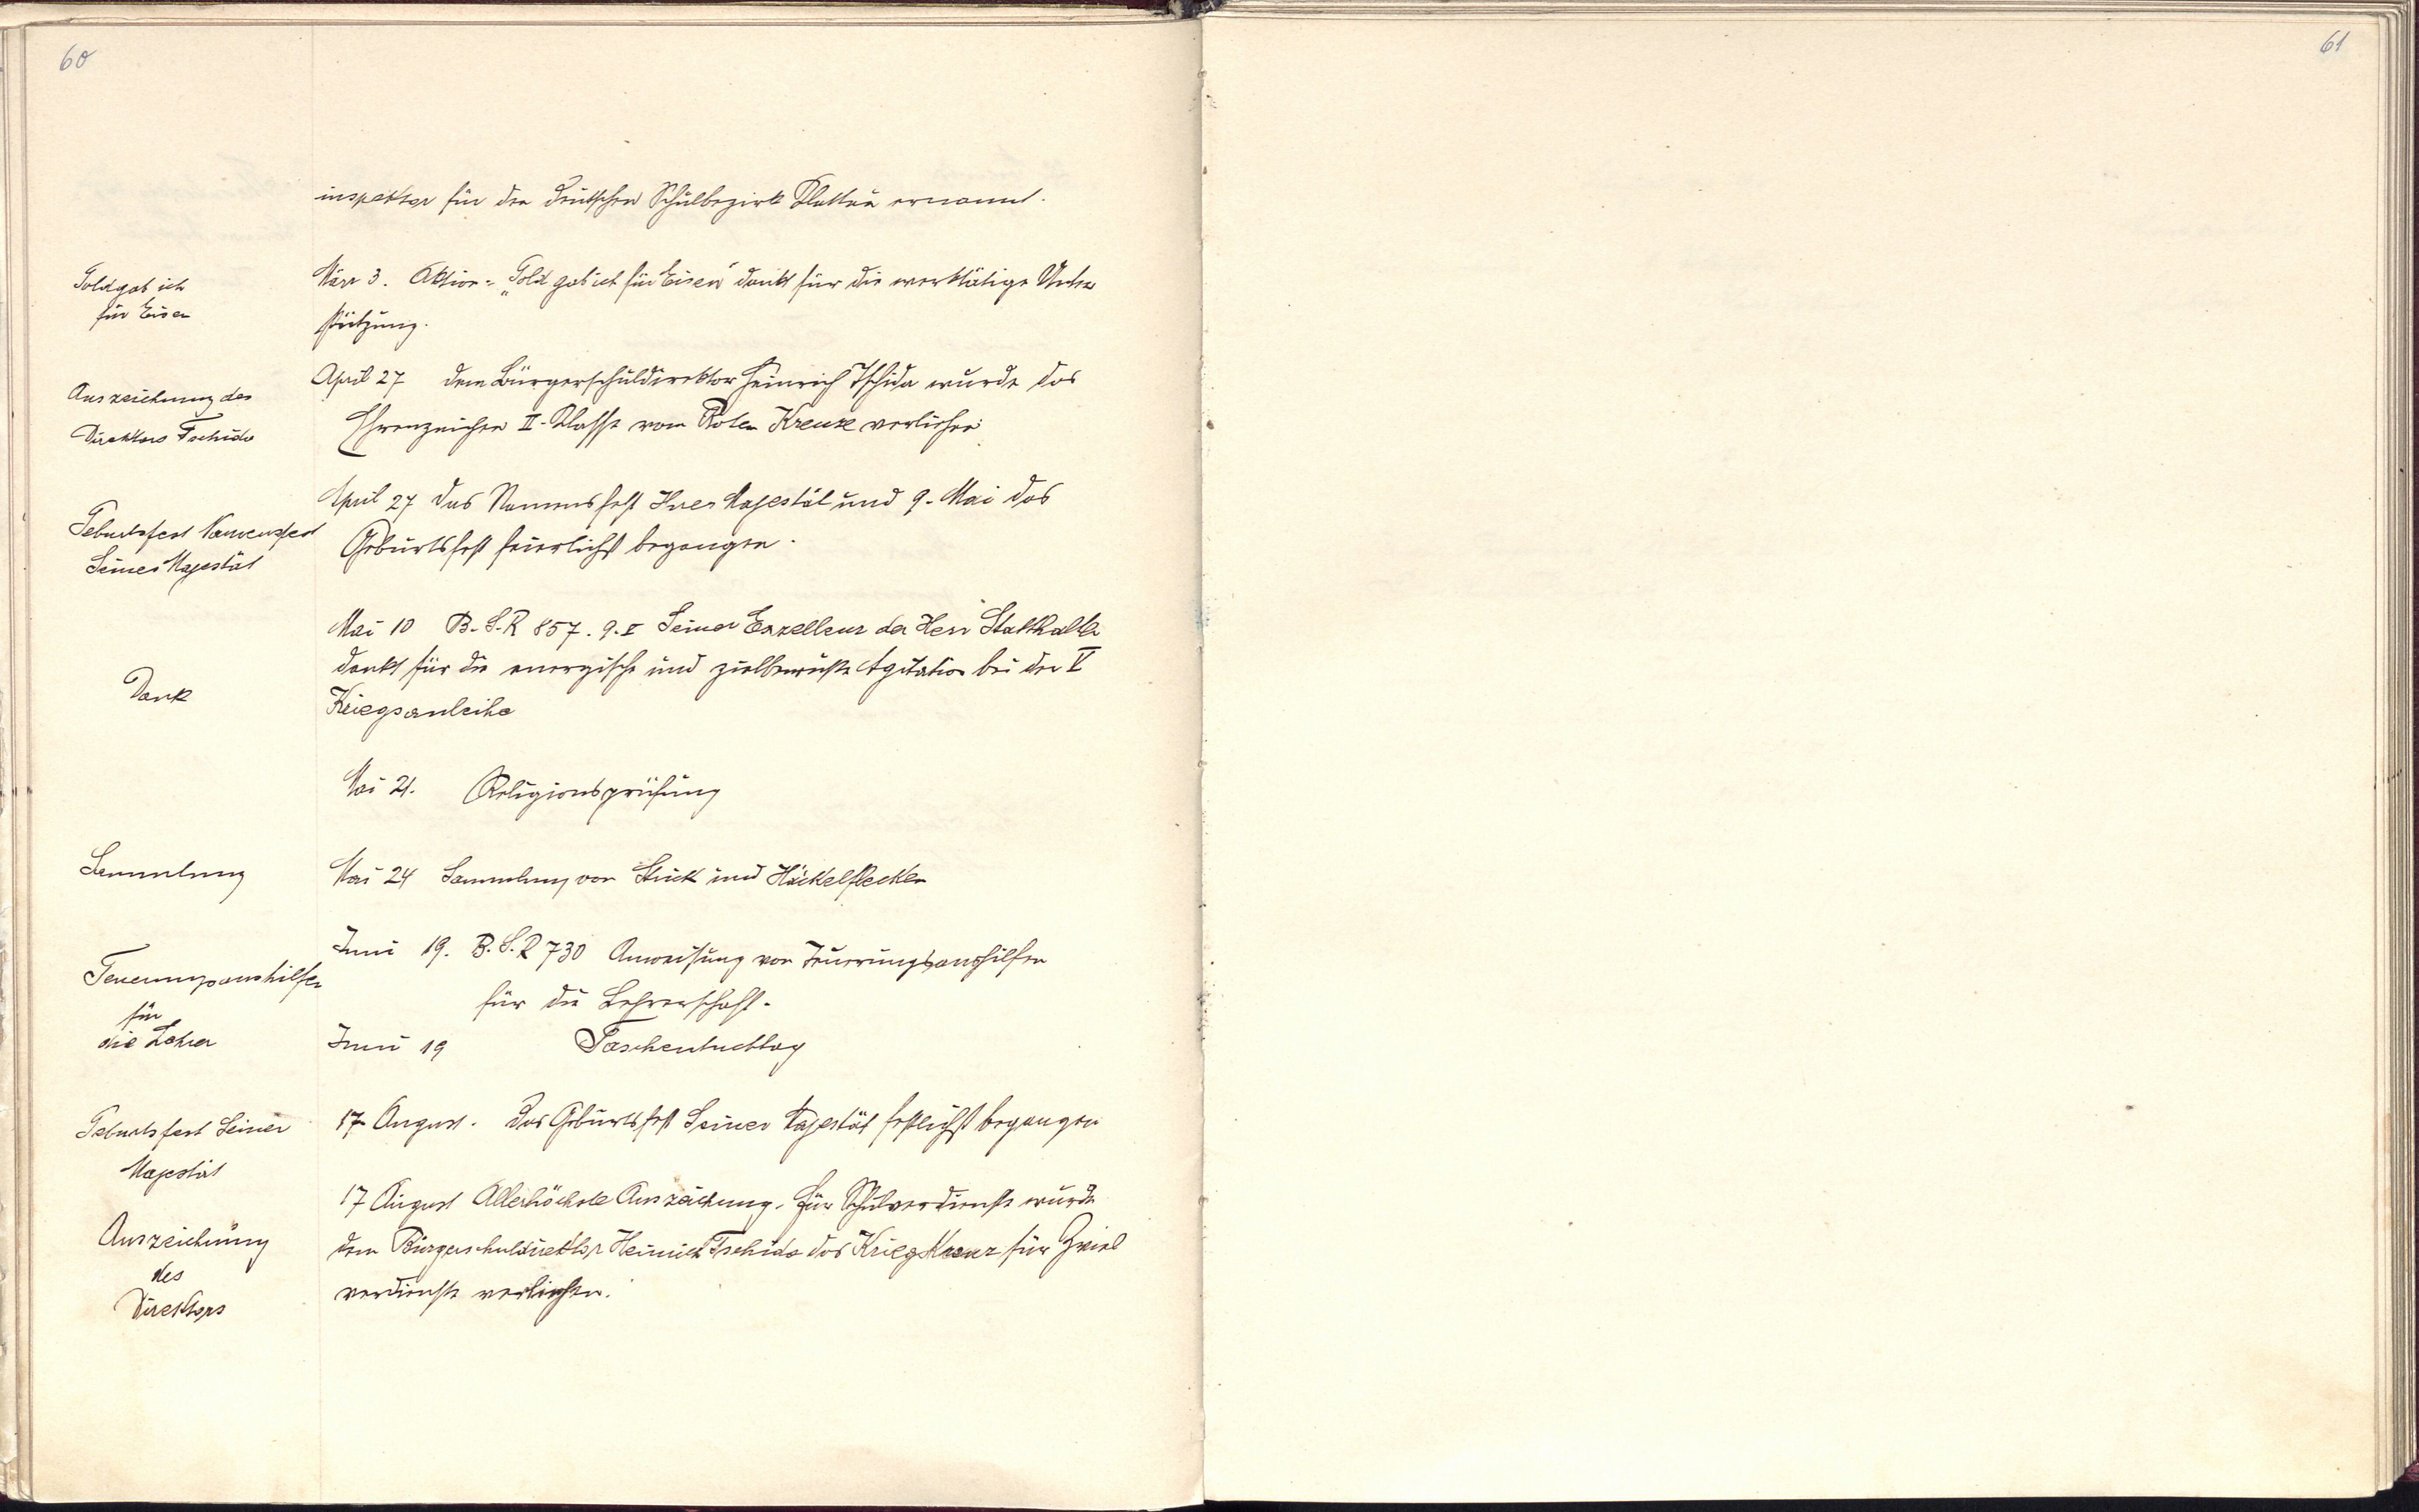 60
61
inspektor für den deutschen Schulbezirk Klattau ernannt.
Gold gab ich
für Eisen
März 3. Aktion: „Gold gab ich für Eisen" dankt für die werktätige Unter
stützung.
Auszeichnung des
Direktors Tschida
April 27 dem Bürgerschuldirektor Heinrich Tschida wurde das
Ehrenzeichen II. Klasse vom Roten Kreuze verliehen.
Geburtsfest Namensfest
Seiner Majestät
April 27 das Namensfest Ihrer Majestät und 9. Mai das
Geburtsfest feierlichst begangen.
Dank
Mai 10 B.S.R 857. 9.V Seiner Exzellenz der Herr Statthalter
dankt für die energische und zielbewußte Agitation bei der V
Kriegsanleihe
Mai 21. Religionsprüfung
Sammlung
Mai 24 Sammlung von Strick und Häckelflecken
Teuerungsaushilfen
für
die Lehrer
Juni 19. B.S.R 730 Anweisung von Teuerungsaushilfen
für die Lehrerschaft.
Juni 19 Taschentuchtag
Geburtsfest Seiner
Majestät
17 August. Das Geburtsfest Seiner Majestät festlichst begangen
Auszeichnung
des
Direktors
17 August Allerhöchste Auszeichnung. Für Schulverdienste wurde
dem Bürgerschuldirektor Heinrich Tschida das Kriegskreuz für Zivil
verdienste verliehen.